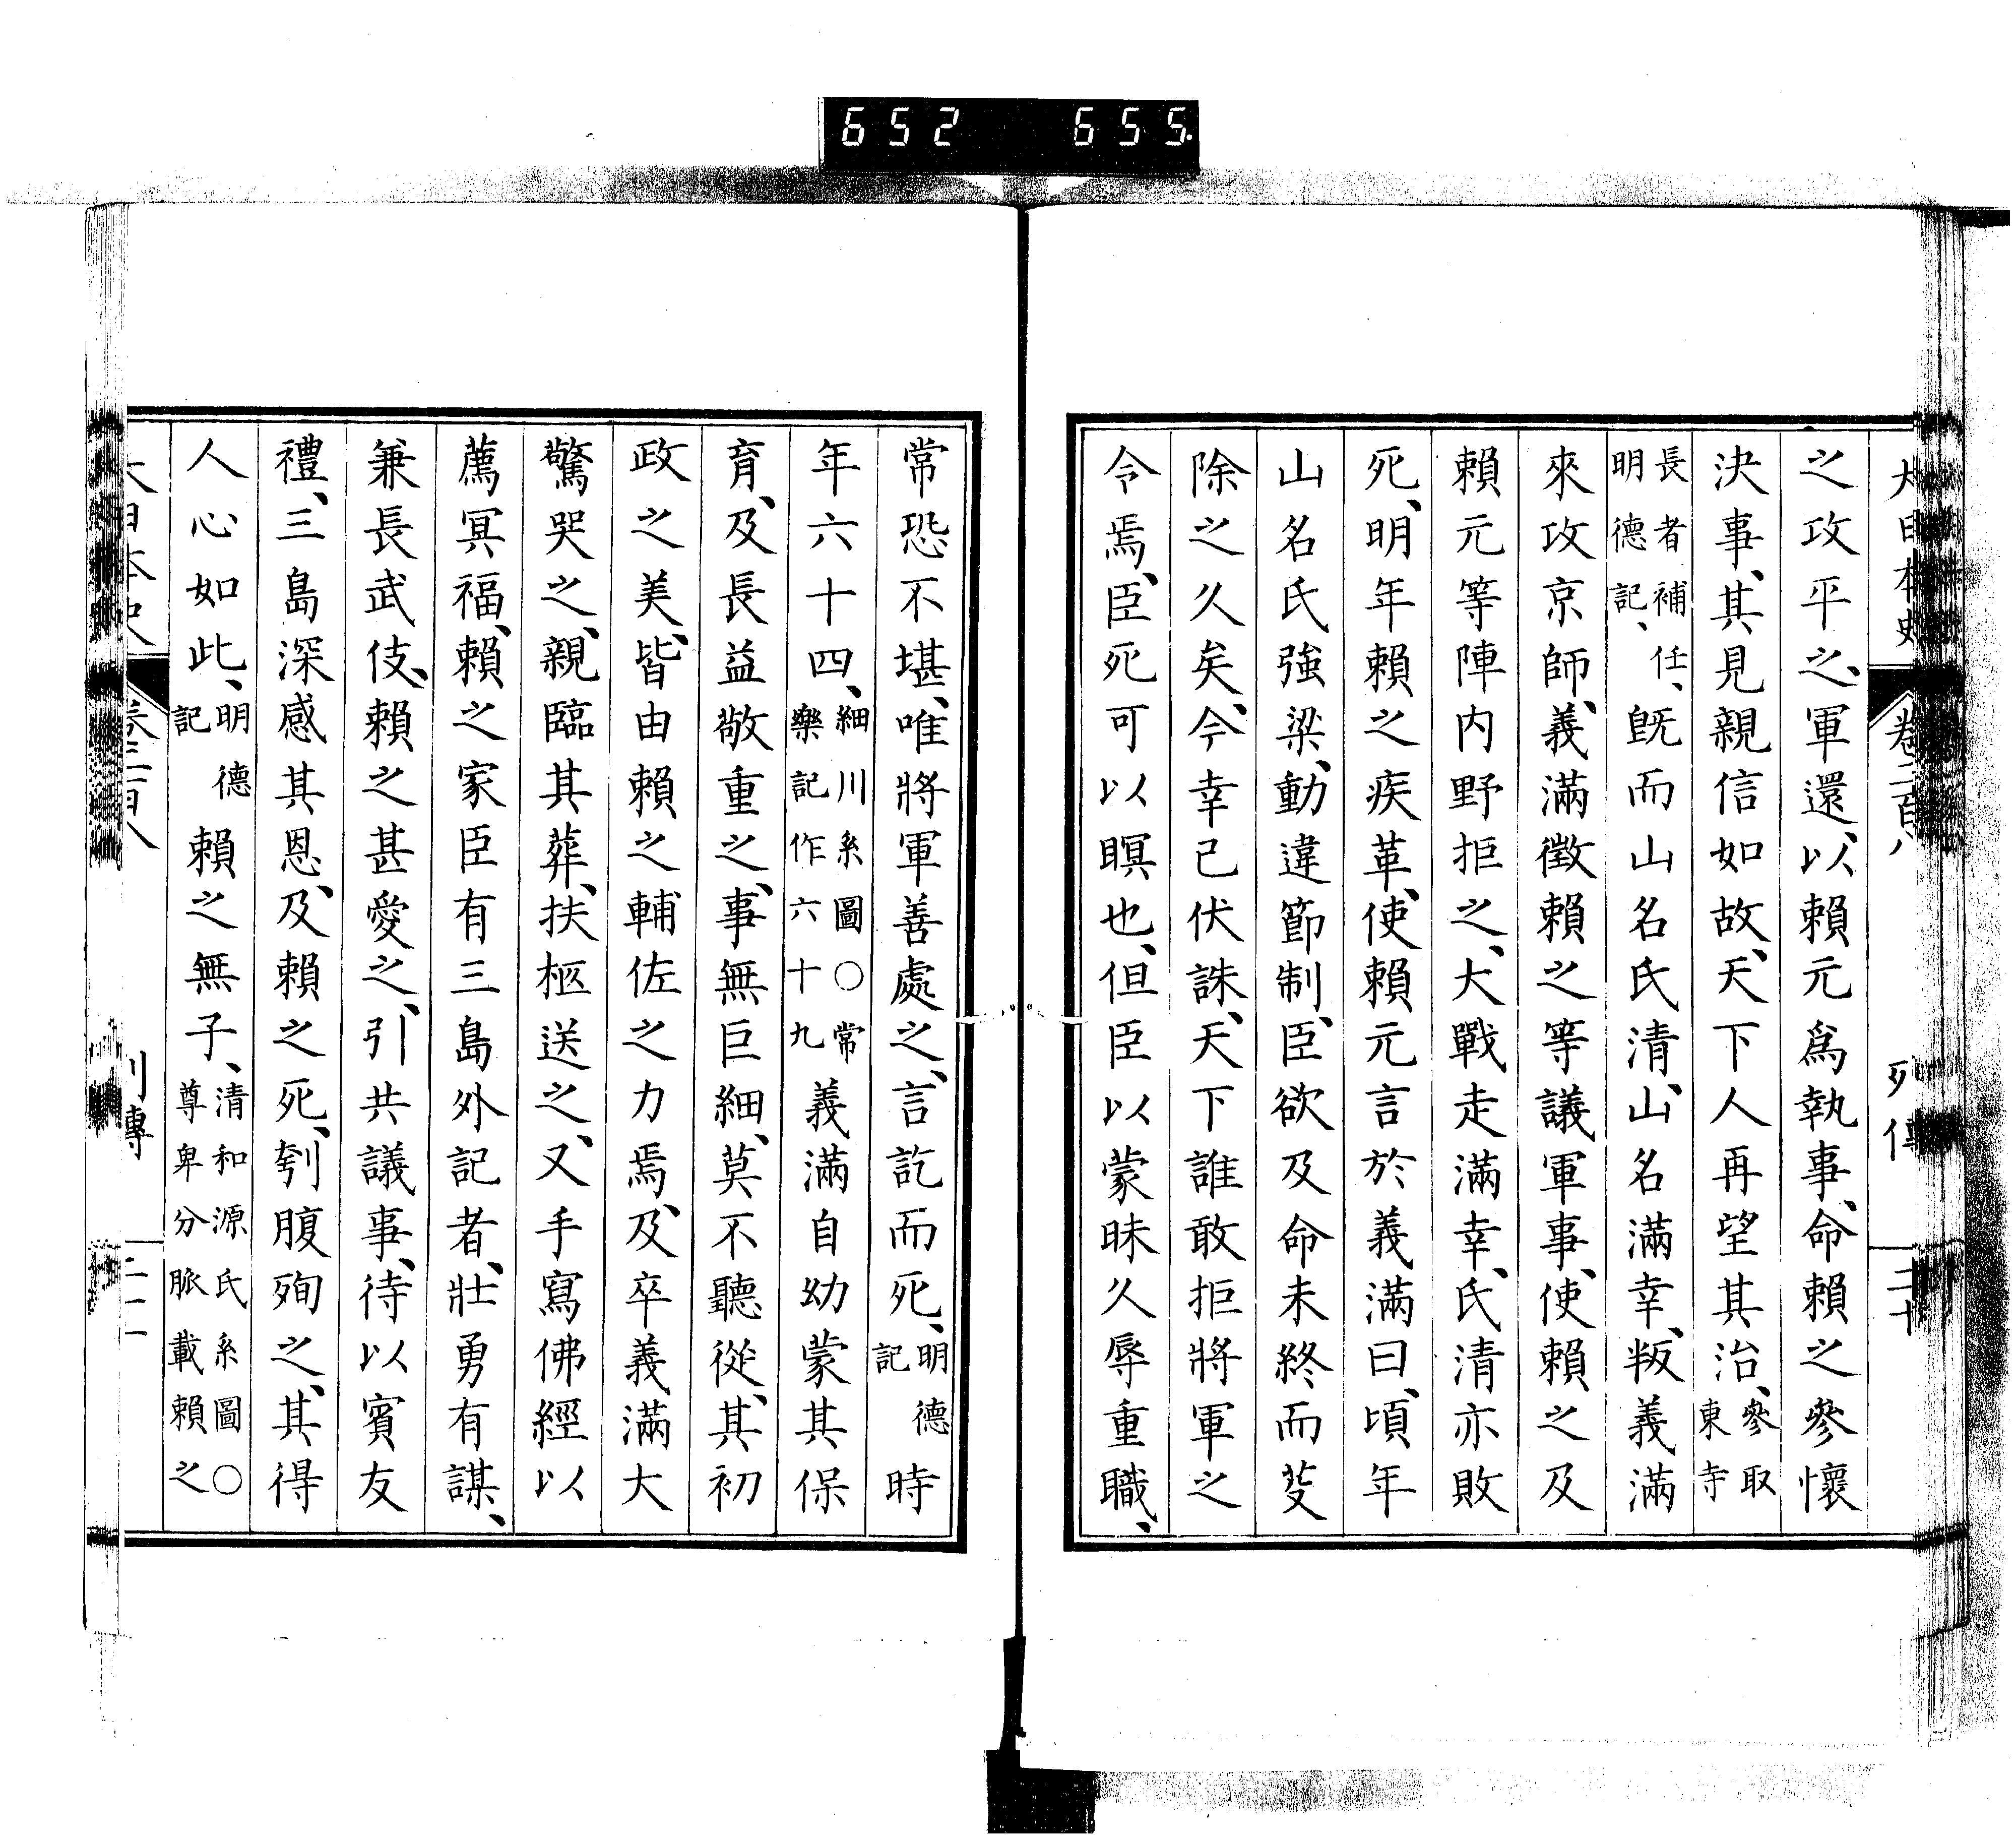 652 655.
大日本史 卷二百八 列傳 二十
之攻平之、軍還、以賴元爲執事、命賴之參懷
決事、其見親信如故、天下人再望其治、參取東寺
長者補任、明德記、旣而山名氏清、山名滿幸、叛義滿
來攻京師、義滿徵賴之等議軍事、使賴之及
賴元等陣内野拒之、大戰走滿幸、氏清亦敗
死、明年賴之疾革、使賴元言於義滿曰、頃年
山名氏強梁、動違節制、臣欲及命未終而芟
除之久矣、今幸已伏誅、天下誰敢拒將軍之
令焉、臣死可以瞑也、但臣以蒙昧久辱重職、
常恐不堪、唯將軍善處之、言訖而死、明德記 時
年六十四、細川系圖○常樂記作六十九 義滿自幼蒙其保
育、及長益敬重之、事無巨細、莫不聽從、其初
政之美、皆由賴之輔佐之力焉、及卒義滿大
驚哭之、親臨其葬、扶柩送之、又手寫佛經以
薦冥福、賴之家臣有三島外記者、壯勇有謀、
兼長武伎、賴之甚愛之、引共議事、待以賓友
禮、三島深感其恩、及賴之死、刳腹殉之、其得
人心如此、明德記 賴之無子、清和源氏系圖○尊卑分脈載賴之
大日本史 卷二百八 列傳